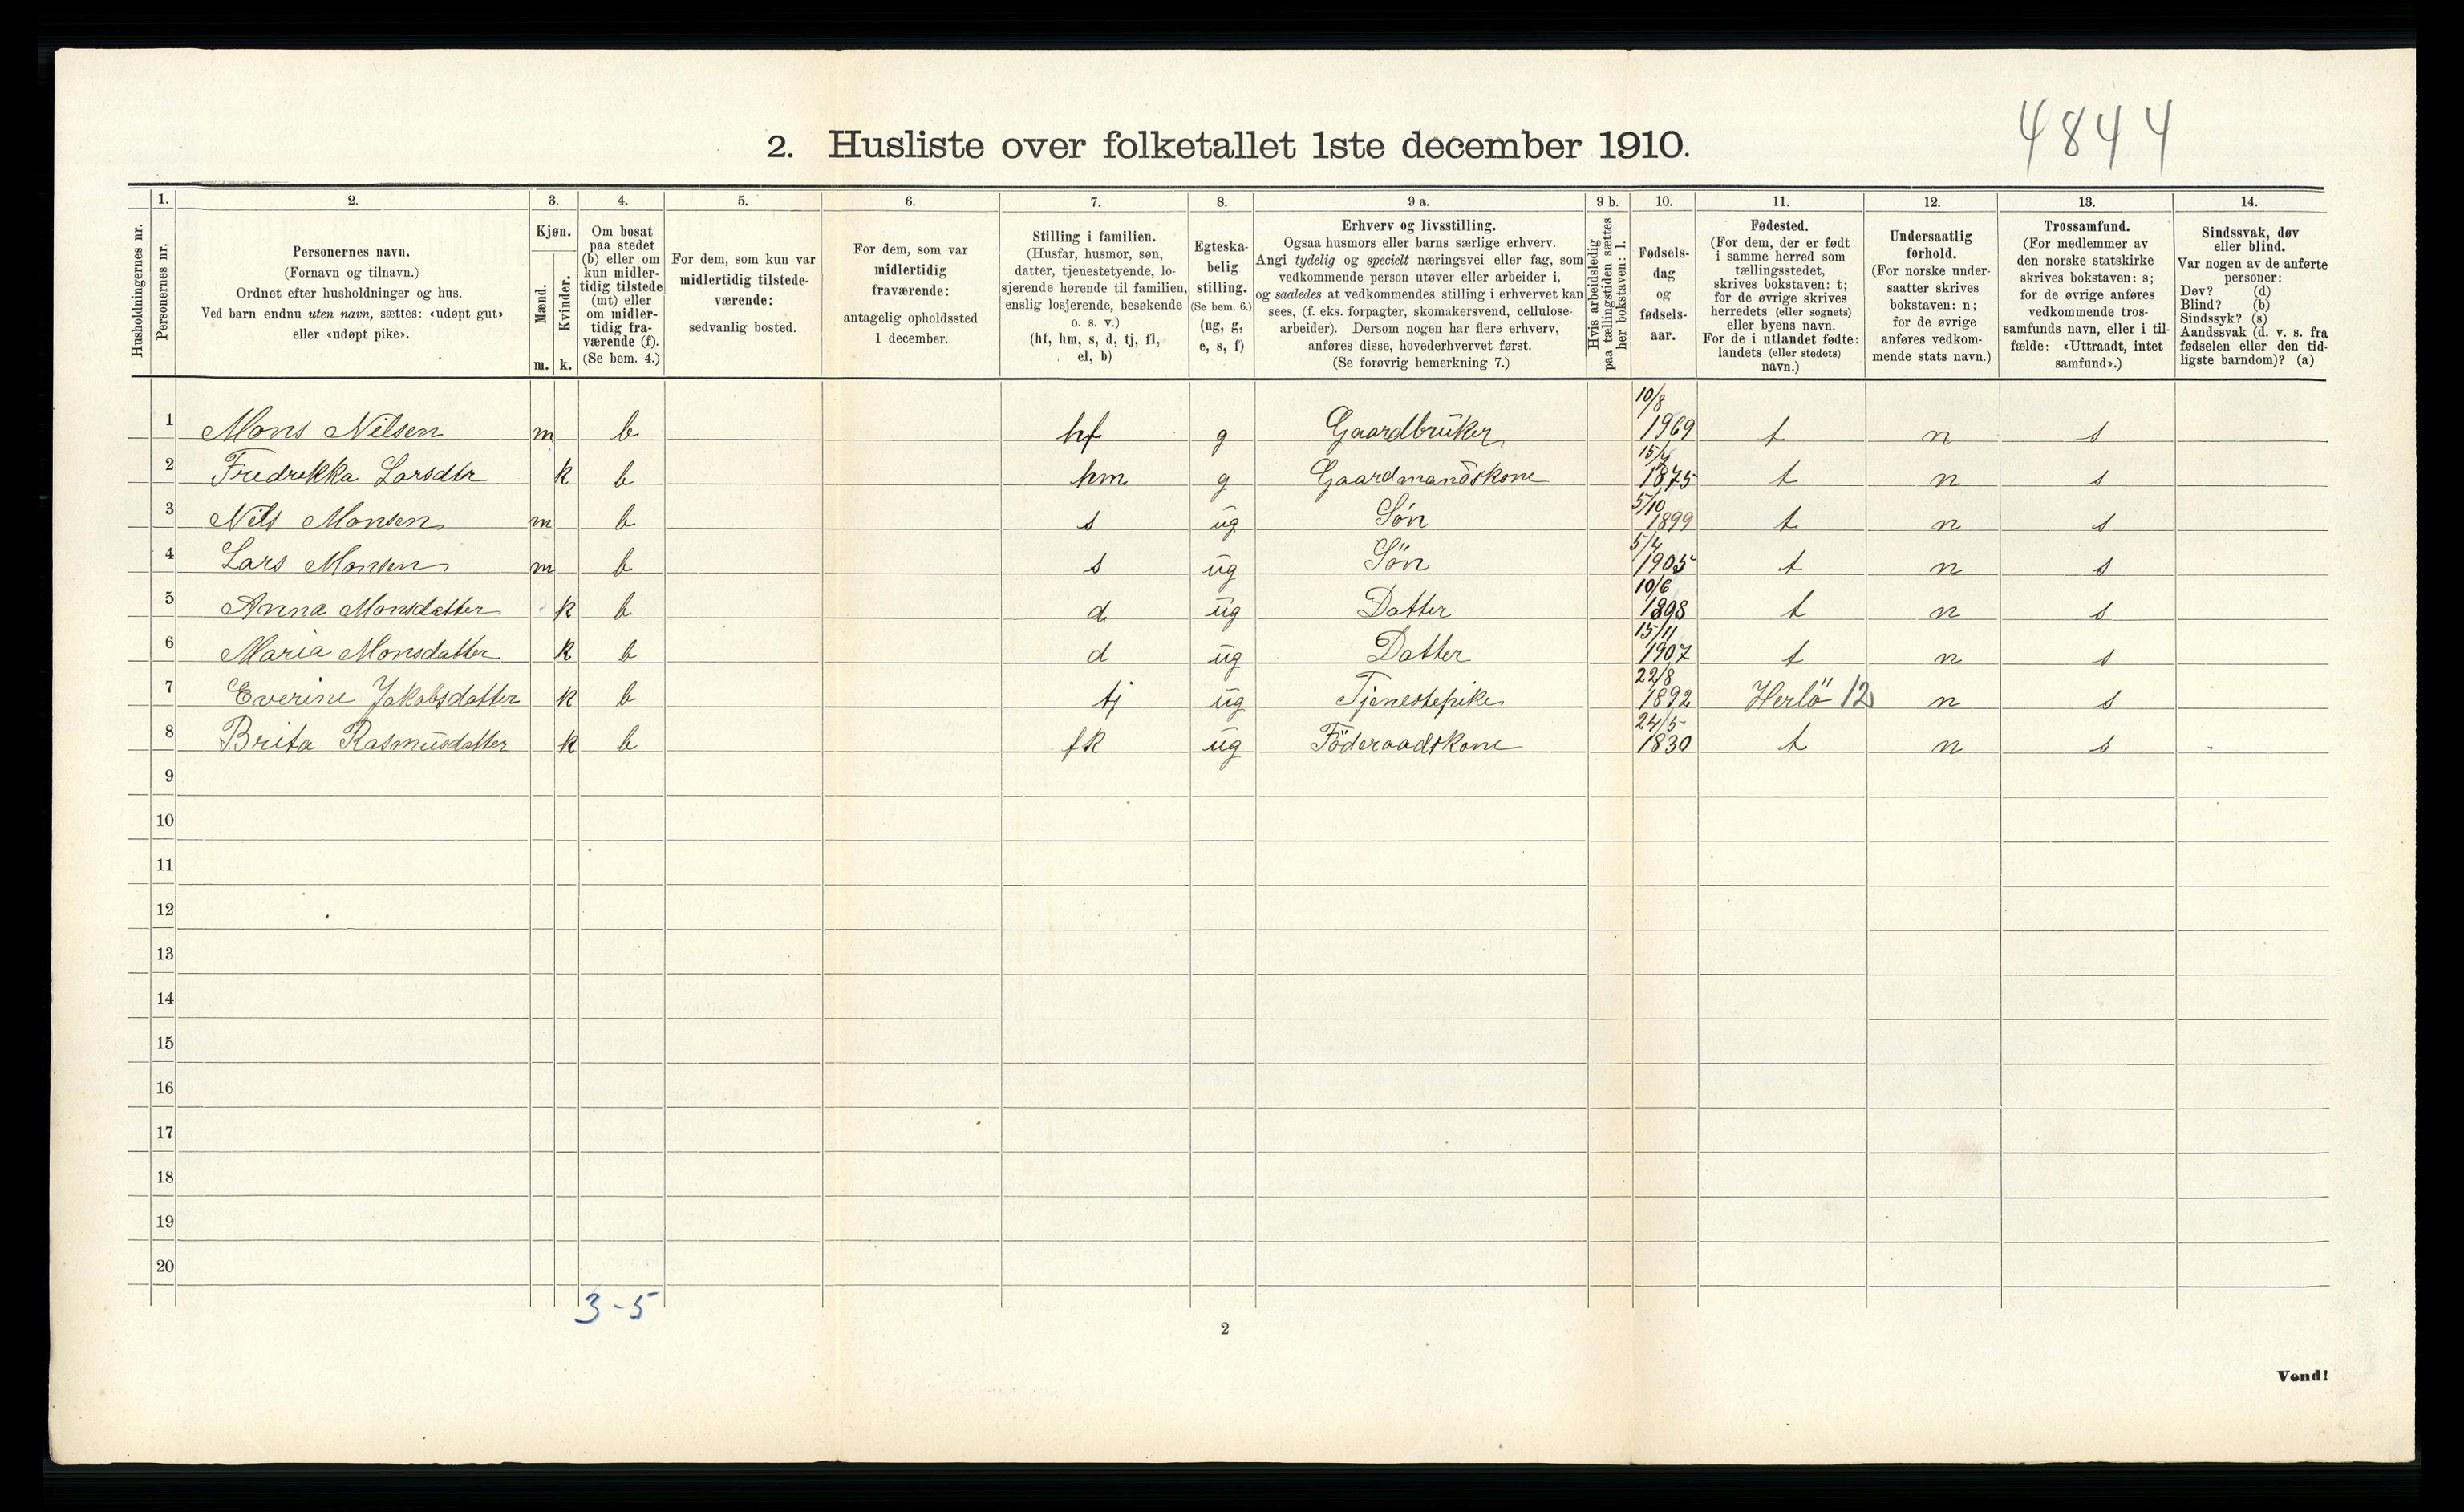 4844
2. Husliste over folketallet 1ste december 1910.
Husholdningernes nr.
1.
Personernes nr.
2.
Personernes navn.
(Fornavn og tilnavn.)
Ordnet efter husholdninger og hus.
Ved barn endnu uten navn, sættes: «udøpt gut»
eller «udøpt pike».
3.
Kjøn.
Mænd.
Kvinder.
m. k.
4.
Om bosat
paa stedet
(b) eller om
kun midler-
tidig tilstede
(mt) eller
om midler-
tidig fra-
værende (f).
(Se bem. 4.)
5.
For dem, som kun var
midlertidig tilstede-
værende:
sedvanlig bosted.
6.
For dem, som var
midlertidig
fraværende:
antagelig opholdssted
1 december.
7.
Stilling i familien.
(Husfar, husmor, søn,
datter, tjenestetyende, lo-
sjerende hørende til familien,
enslig losjerende, besøkende
o. s. v.)
(hf, hm, s, d, tj, fl,
el, b)
8.
Egteska-
belig
stilling.
(Se bem. 6.)
(ug, g,
e, s, f)
9 a.
Erhverv og livsstilling.
Ogsaa husmors eller barns særlige erhverv.
Angi tydelig og specielt næringsvei eller fag, som
vedkommende person utøver eller arbeider i,
og saaledes at vedkommendes stilling i erhvervet kan
sees, (f. eks. forpagter, skomakersvend, cellulose-
arbeider). Dersom nogen har flere erhverv,
anføres disse, hovederhvervet først.
(Se forøvrig bemerkning 7.)
9 b.
Hvis arbeidsledig
paa tællingstiden sættes
her bokstaven: l.
10.
Fødsels-
dag
og
fødsels-
aar.
11.
Fødested.
(For dem, der er født
i samme herred som
tællingsstedet,
skrives bokstaven: t;
for de øvrige skrives
herredets (eller sognets)
eller byens navn.
For de i utlandet fødte:
landets (eller stedets)
navn.)
12.
Undersaatlig
forhold.
(For norske under-
saatter skrives
bokstaven: n;
for de øvrige
anføres vedkom-
mende stats navn.)
13.
Trossamfund.
(For medlemmer av
den norske statskirke
skrives bokstaven: s;
for de øvrige anføres
vedkommende tros-
samfunds navn, eller i til-
fælde: «Uttraadt, intet
samfund».)
14.
Sindssvak, døv
eller blind.
Var nogen av de anførte
personer:
Døv? (d)
Blind? (b)
Sindssyk? (s)
Aandssvak (d. v. s. fra
fødselen eller den tid-
ligste barndom)? (a)
1 Mons Nilsen m b hf g Gaardbruker 10/8 1969 t n s
2 Fredrikka Larsdtr k b hm g Gaardmandskone 15/4 1875 t n s
3 Nils Monsen m b s ug Søn 5/10 1899 t n s
4 Lars Monsen m b s ug Søn 5/4 1905 t n s
5 Anna Monsdatter k b d ug Datter 10/6 1898 t n s
6 Maria Monsdatter k b d ug Datter 15/11 1907 t n s
7 Everine Jakobsdatter k b tj ug Tjenestepike 22/8 1892 Herlö 12 n s
8 Brita Rasmusdatter k b fk ug Föderaadskone 24/5 1830 t n s
9
10
11
12
13
14
15
16
17
18
19
20
3-5
2
Vend!